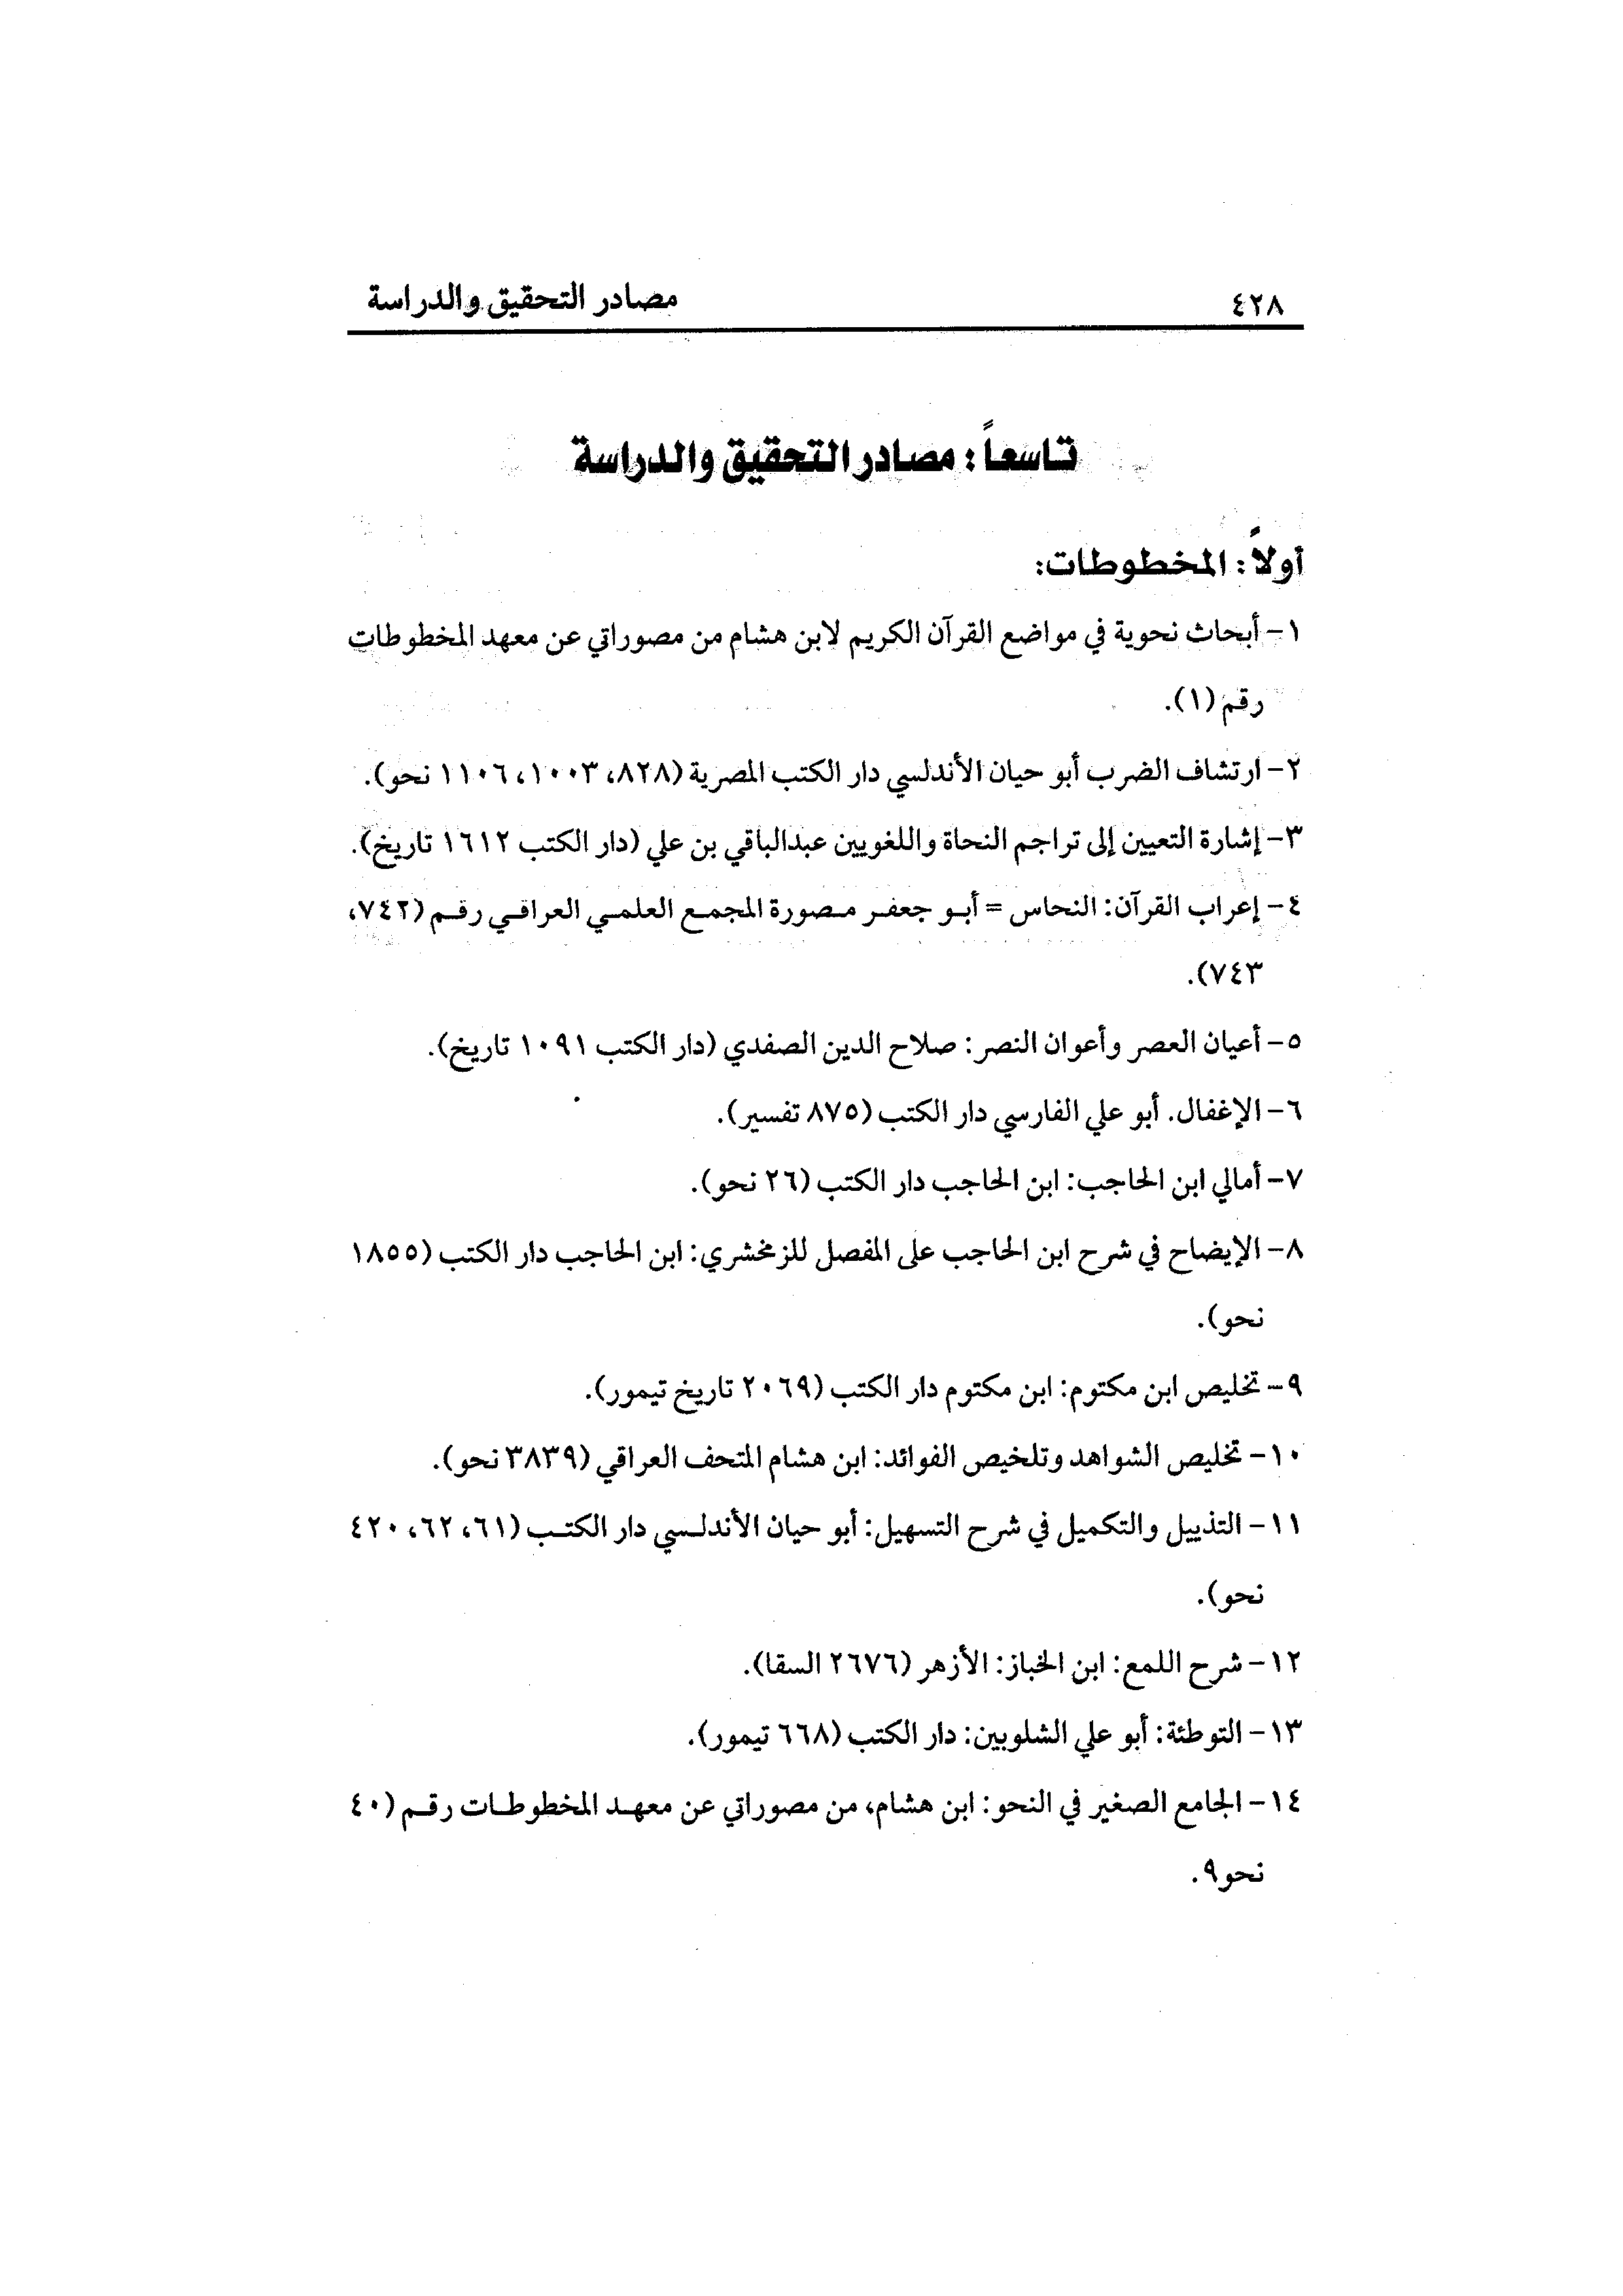 ٤٢٨
مصادر التحقيق والدراسة
تاسعاً: مصادر التحقيق والدراسة
أولاً: المخطوطات:
١- أبحاث نحوية في مواضع القرآن الكريم لابن هشام من مصوراتي عن معهد المخطوطات
رقم (١).
٢- ارتشاف الضرب أبو حيان الأندلسي دار الكتب المصرية (٨٢٨، ١٠٠٣، ١١٠٦ نحو).
٣- إشارة التعيين إلى تراجم النحاة واللغويين عبدالباقي بن علي (دار الكتب ١٦١٢ تاريخ).
٤- إعراب القرآن: النحاس = أبو جعفر مصورة المجمع العلمي العراقي رقم (٧٤٢،
٧٤٣).
٥- أعيان العصر وأعوان النصر: صلاح الدين الصفدي (دار الكتب ١٠٩١ تاريخ).
٦- الإغفال. أبو علي الفارسي دار الكتب (٨٧٥ تفسير).
٧- أمالي ابن الحاجب: ابن الحاجب دار الكتب (٢٦ نحو).
٨- الإيضاح في شرح ابن الحاجب على المفصل للزمخشري: ابن الحاجب دار الكتب (١٨٥٥
نحو).
٩- تخليص ابن مكتوم: ابن مكتوم دار الكتب (٢٠٦٩ تاريخ تيمور).
١٠- تخليص الشواهد وتلخيص الفوائد: ابن هشام المتحف العراقي (٣٨٣٩ نحو).
١١- التذييل والتكميل في شرح التسهيل: أبو حيان الأندلسي دار الكتب (٦١، ٦٢، ٤٢٠
نحو).
١٢- شرح اللمع: ابن الخباز: الأزهر (٢٦٧٦ السقا).
١٣- التوطئة: أبو علي الشلوبين: دار الكتب (٦٦٨ تيمور).
١٤- الجامع الصغير في النحو: ابن هشام، من مصوراتي عن معهد المخطوطات رقم (٤٠
نحو٩.